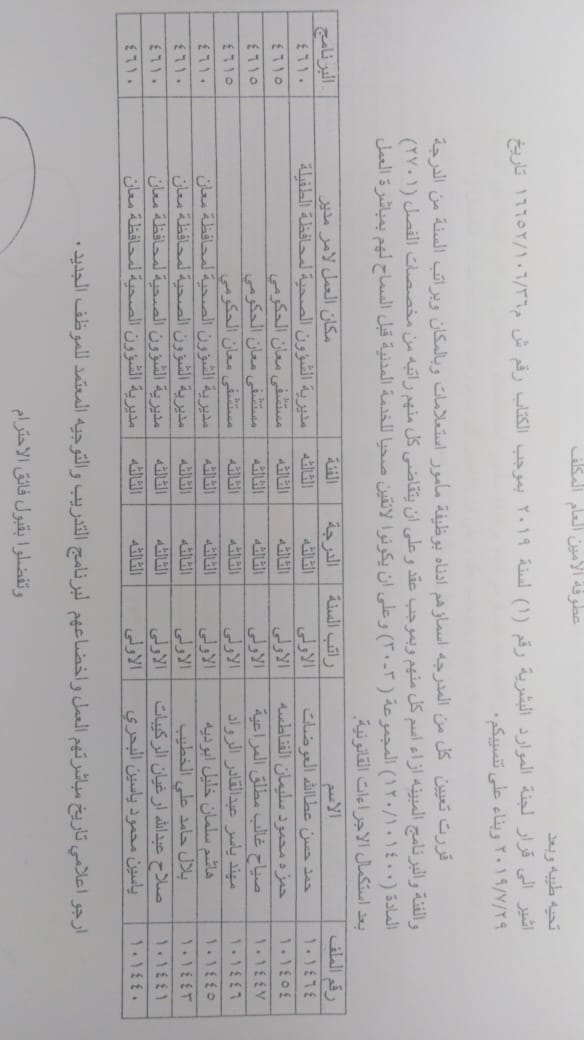 عطوفة الامين العام المكلف
تحيه طيبه وبعد
اشير الى قرار لجنة الموارد البشرية رقم (١) لسنة ٢٠١٩ بموجب الكتاب رقم ش م/٣٦/١٠٦/١٦٦٥٢ تاريخ
٢٠١٩/٧/٢٩ وبناء على تنسيبكم.
قررت تعيين كل من المدرجه اسماؤهم ادناه بوظيفة مامور استعلامات وبالمكان وبراتب السنة من الدرجة
والفئة والبرنامج المبينه ازاء اسم كل منهم وبموجب عقد وعلى ان يتقاضى كل منهم راتبه من مخصصات الفصل (٢٧٠١)
المادة (١٢٠/١٠١٤٠٠) المجموعة (٣-٣٠) وعلى ان يكونوا لائقين صحيا للخدمة المدنية قبل السماح لهم بمباشرة العمل
بعد استكمال الاجراءات القانونية.
رقم الملف الاسم راتب السنة الدرجة الفئة مكان العمل لامر مدير البرنامج
١٠١٤٦٤ حمد حسن عطاالله العوضات الاولى الثالثه الثالثه مديرية الشؤون الصحية لمحافظة الطفيلة ٤٦١٠
١٠١٤٥٤ حمزه محمود سليمان القناطسه الاولى الثالثه الثالثه مستشفى معان الحكومي ٤٦١٥
١٠١٤٤٧ صباح غالب مطلق المراعية الاولى الثالثه الثالثه مستشفى معان الحكومي ٤٦١٥
١٠١٤٤٦ مهند ياسر عبدالقادر الرواد الاولى الثالثه الثالثه مستشفى معان الحكومي ٤٦١٥
١٠١٤٤٥ هاشم سلمان خليل ابوديه الاولى الثالثه الثالثه مديرية الشؤون الصحية لمحافظة معان ٤٦١٠
١٠١٤٤٣ بلال حامد علي الخطيب الاولى الثالثه الثالثه مديرية الشؤون الصحية لمحافظة معان ٤٦١٠
١٠١٤٤١ صلاح عبدالله ارغيان الركيبات الاولى الثالثه الثالثه مديرية الشؤون الصحية لمحافظة معان ٤٦١٠
١٠١٤٤٠ ياسين محمود ياسين البحري الاولى الثالثه الثالثه مديرية الشؤون الصحية لمحافظة معان ٤٦١٠
ارجو اعلامي تاريخ مباشرتهم العمل واخضاعهم لبرنامج التدريب والتوجيه المعتمد للموظف الجديد .
وتفضلوا بقبول فائق الاحترام